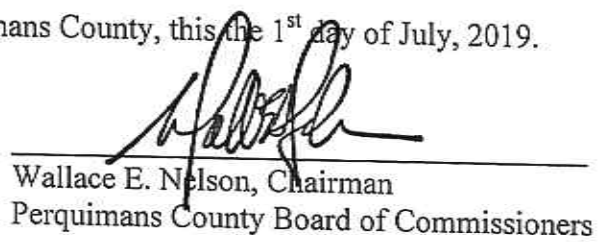 mans County, this the 1st day of July, 2019.
Wallace E. Nelson, Chairman
Perquimans County Board of Commissioners